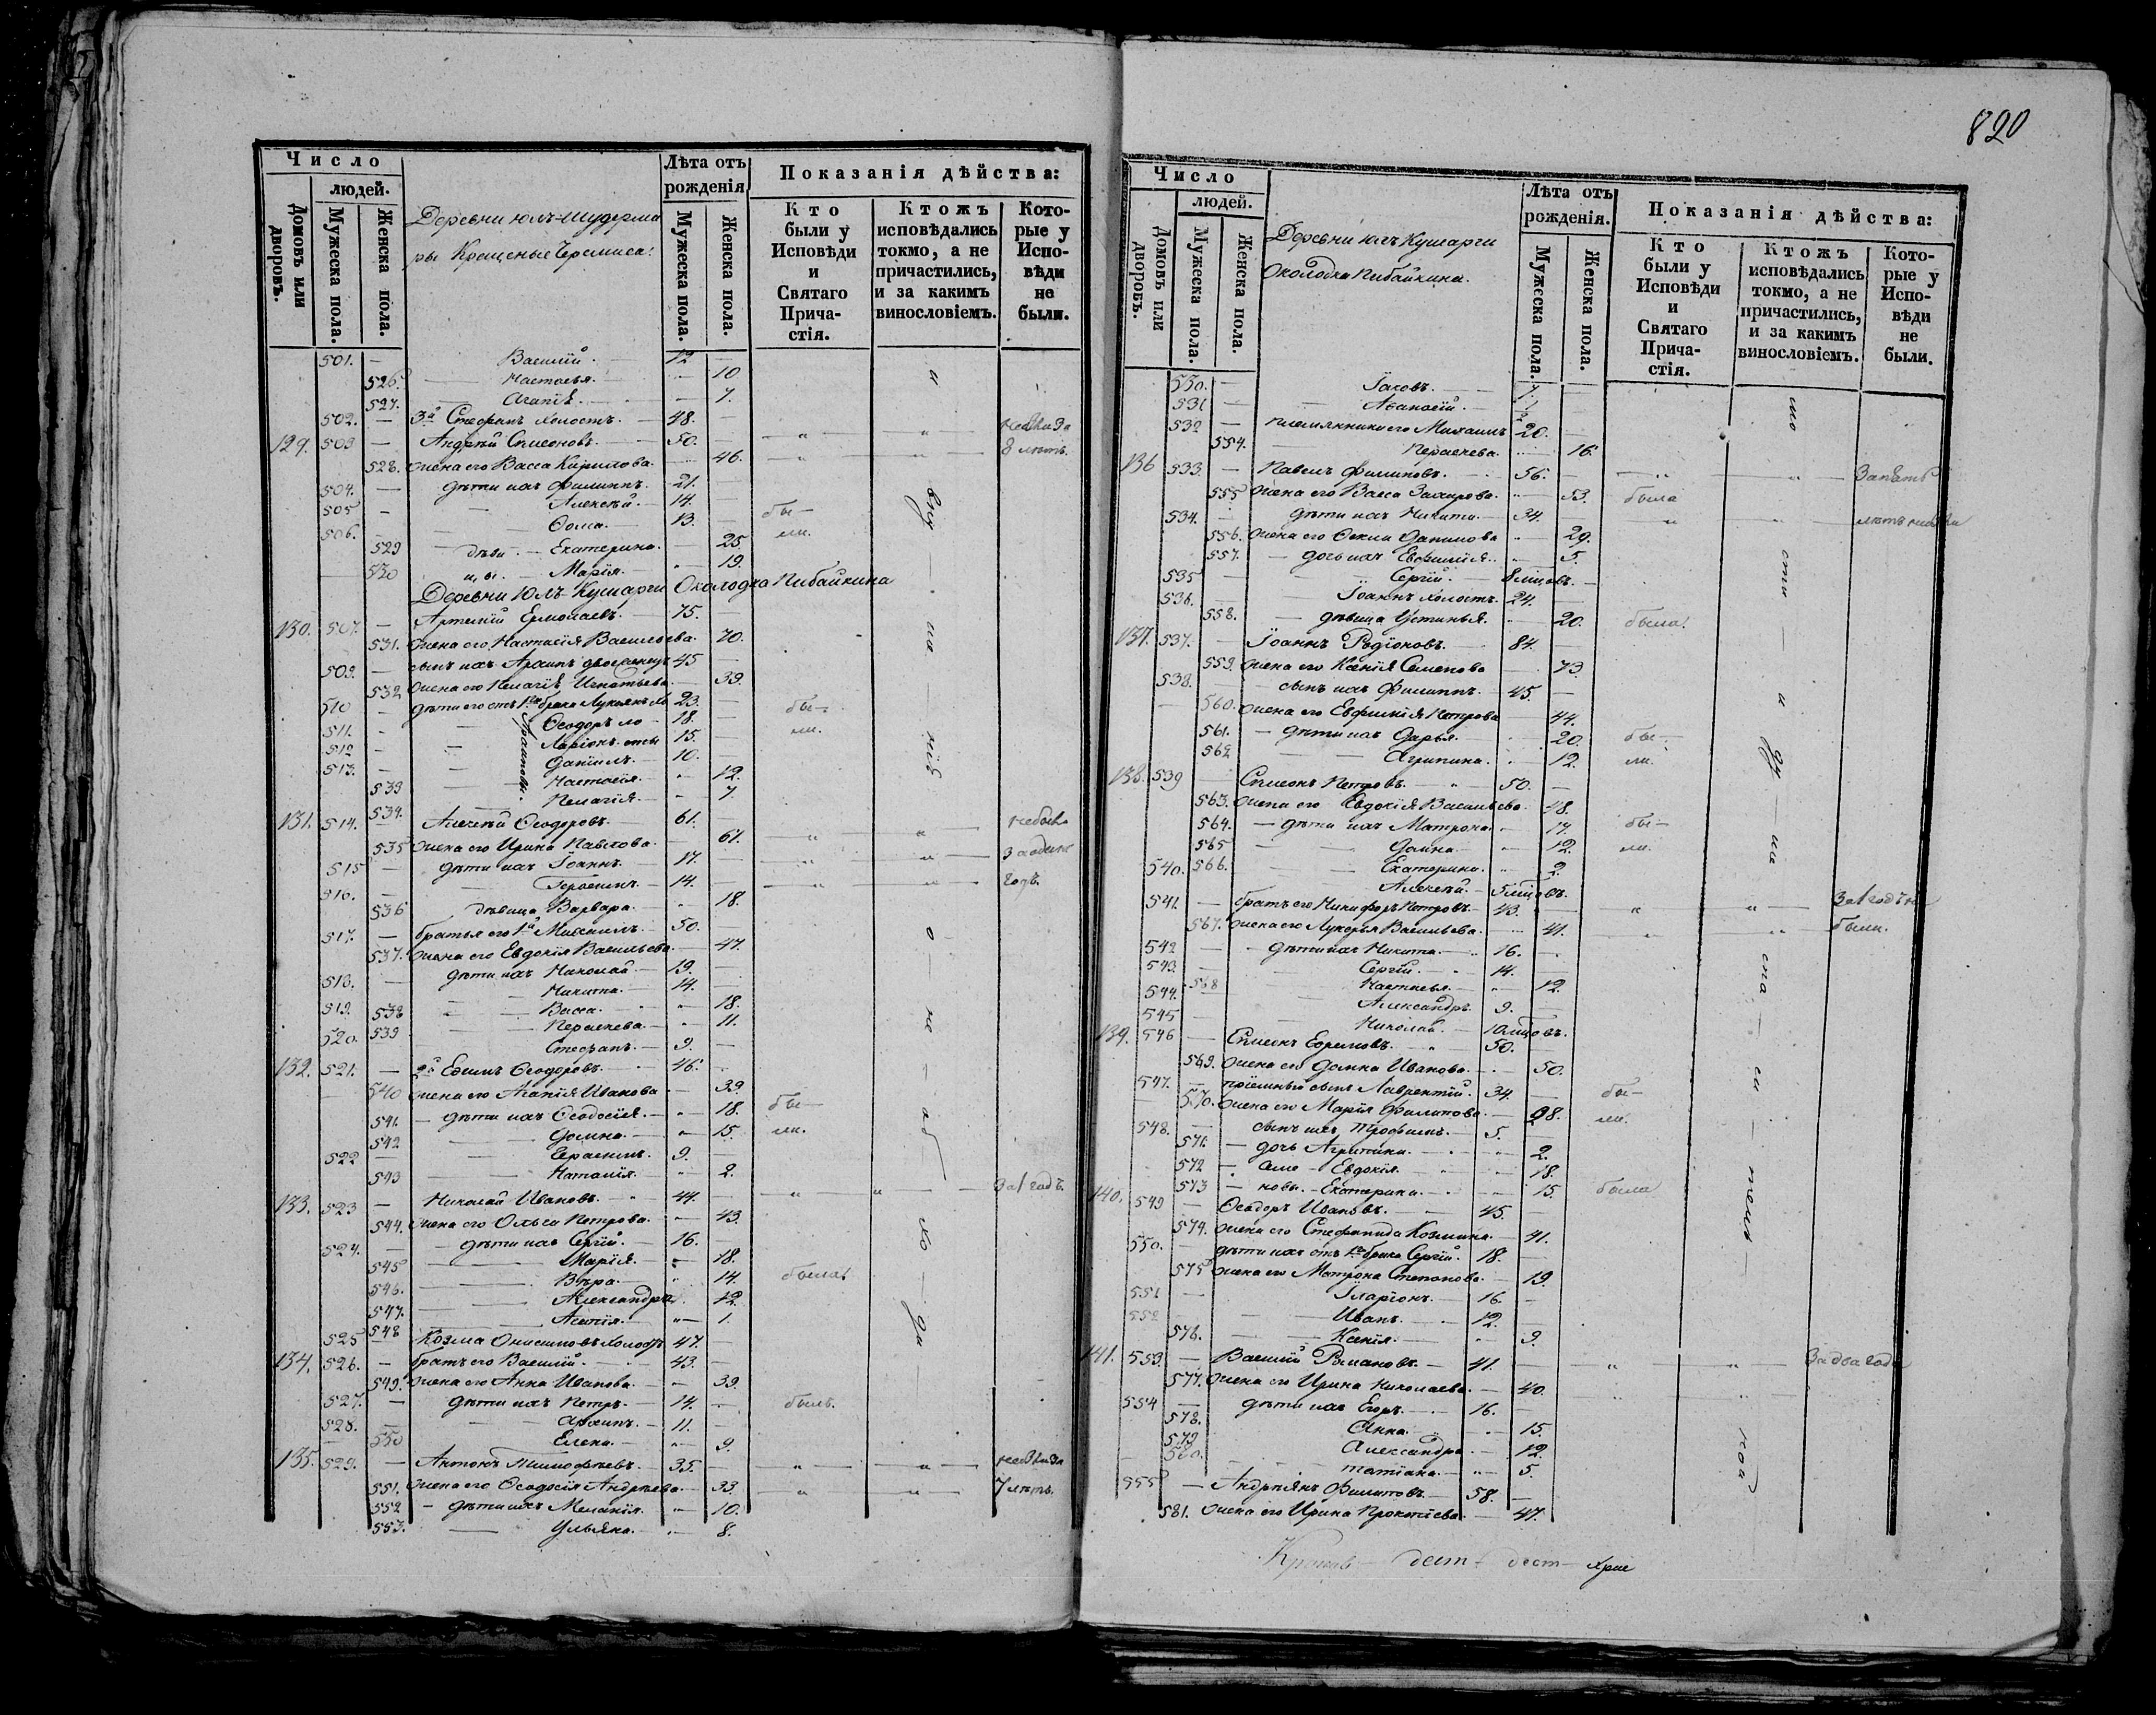 820
Число
людей.
Домовъ или дворовъ.
Мужеска пола.
Женска пола.
Деревни Юлъ-Шудерма
ры Крещеные Черемиса:
Лѣта отъ рожденія
Мужеска пола.
Женска пола.
Показанія дѣйства:
Кто были у Исповѣди и Святаго Прича-стія.
Ктожъ исповѣдались токмо, а не причастились, и за какимъ винословіемъ.
Кото-рые у Испо-вѣди не были.
501. — Василій. — 12 —
526. — Настасья. — 10
527. — Агапіѣ — 7.
502. — 3й Стефанъ холостъ. — 48. —
129. 503 — Андрей Симеоновъ. 50. — " — " — 8 лѣтъ.
528. жена его Васса Кирилова. — 46.
504. — дѣти ихъ Филиппъ. — 21. —
505 — Алексѣй. — 14. — бы-
506. — Ѳома. — 13. — ли.
529 — дѣви — Екатерина. — 25
530 цы. — Марія. — 19.
Деревни Юлъ-Кушарги Околодка Пибайкина
130. 507. — Артемій Ермолаевъ. — 75. —
531. жена его Настасія Васильева. 70.
509. — сынъ ихъ Архипъ двоеженецъ 45 —
532 жена его Пелагіѣ Игнатьева. — 39.
510 дѣти его отъ 1го брака Лукьянъ хо 23. — бы-
511. — Ѳеодоръ ло — 18. — ли.
512 — Ларіонъ. сты 15. —
513. — Даніилъ. — 10. —
533 — Настасія. — " — 12.
534. — Пелагія. — " — 7.
131. 514. Алексѣй Ѳеодоровъ. — 61. — " — " — небыл
535 жена его Ирина Павлова. — 61. за одинъ
515 — дѣти ихъ Іоаннъ. — 17. — годъ.
516. — Герасимъ. — 14. —
536 дѣвица Варвара. — " — 18.
517. — братья его 1й Михаилъ. — 50. —
537. жена его Евдокія Васильева. — 47.
518. — дѣти ихъ Николай. — 19. —
519. Никита. — 14. —
538 — Васса. — " — 18.
539 — Пераскева. — " — 11.
520. Стефанъ. — 9. —
132. 521. — 2й Ефимъ Ѳеодоровъ. — 46. —
540 жена его Агапія Иванова — 39.
541. — дѣти ихъ Ѳеодосія. — " — 18. бы-
542 — Домна. — " — 15. ли.
522 — Герасимъ. — 9. —
543 — Наталія. — " — 2.
133. 523 — Николай Ивановъ. — 44. — " — " — За 1 годъ.
544. жена его Ольга Петрова. — 43.
524. — дѣти ихъ Сергій. — 16. —
545 — Марія. — " — 18.
546. — Вѣра. — " — 14. была.
547. — Александра. 12.
548 — Агапія. — " — 1.
525 Козма Онисимовъ холостъ 47. —
134. 526. — братъ его Василій. — 43. —
549. жена его Анна Иванова. — 39.
527. — дѣти ихъ Петръ. — 14. — былъ.
528. — Архипъ. — 11. —
550 Елена. — " — 9.
135. 529. — Антонъ Тимофѣевъ. — 35. — " — "
551. жена его Ѳеодосія Андрѣева. — 33. — " — " — 7 лѣтъ.
552 — дѣти ихъ Меланія. — " — 10.
553. — Ульяна. — " — 8.
Число
людей.
Домовъ или дворовъ.
Мужеска пола.
Женска пола.
Деревни Юлъ Кушарги
Околодка Пибайкина.
Лѣта отъ рожденія.
Мужеска пола.
Женска пола.
Показанія дѣйства:
Кто были у Исповѣди и Святаго Прича-стія.
Ктожъ исповѣдались токмо, а не причастились, и за какимъ винословіемъ.
Кото-рые у Испо-вѣди не были.
530. — Іаковъ. — 7.
531 — Аѳанасій. —
532 — племянники его Михаилъ 20. —
554. Пераскева. — 16.
136 533. — Павелъ Филиповъ. 56. — " — " — За пять
555 жена его Васса Захарова. — " — 53. была
534. — дѣти ихъ Никита. — 34. — " — "
556. жена его Ѳекла Данилова " — 29.
557. — дочь ихъ Евфимія. — 5.
535 — Сергій. — 8 мцовъ. —
536. — Іоаннъ холостъ. 24. —
558. — дѣвица Устинья. — 20. была.
137. 537. — Іоаннъ Родіоновъ. — 84. —
559. жена его Ксенія Семенова — 73
538. — сынъ ихъ Филиппъ. — 45. —
560. жена его Евфимія Петрова — 44.
561. — дѣти ихъ Дарья. — 20. бы-
562 — Агрипина. — 12. ли.
138. 539 — Симеонъ Петровъ. — 50. —
563. жена его Евдокія Васильева. 48.
564. — дѣти ихъ Матрона. " — 17. бы-
565 — Домна. — 12. ли.
566. Екатерина. 2.
540. Алексѣй. — 5 мцовъ.
541. — братъ его Никифоръ Петровъ. — 43. — " — " — За 1 годъ не
567. жена его Лукерья Васильева. — 41. — " — были.
542 — дѣти ихъ Никита. — 16. —
543. — Сергій. — 14. —
568 Настасья. — 12.
544. Александръ. 9. —
545 — Николай. — 10 мцовъ.
139. 546 — Симеонъ Ефремовъ. 50. —
569. жена его Домна Иванова. — 50.
547. — пріемный сынъ Лаврентій. 34. — бы-
570. жена его Марія Филипова. — 38. ли.
548. — сынъ ихъ Трофимъ. — 5. —
571. — дочь Агрипина. — 2.
572 — Евдокія. — 18.
573 — Екатерина. — 15. была
140. 549 — Ѳеодоръ Ивановъ. — 45. —
574. жена его Стефанида Козмина. — 41.
550. — дѣти ихъ отъ 1го брака Сергій. 18. —
575 жена его Матрона Степанова. — 19.
551 — Іларіонъ. — 16. —
552 — Иванъ. — 12. —
576. — Ксенія. — " — 9.
141. 553. — Василій Романовъ. — 41. — " — " — За два года
577. жена его Ирина Николаева. — 40.
554 — дѣти ихъ Егоръ. — 16. —
578. Анна. — 15.
579 Александра. — 12.
580. Татіана. — " — 5.
555 — Андріянъ Филиповъ. — 58. —
581. жена его Ирина Прокопіева. — 47.